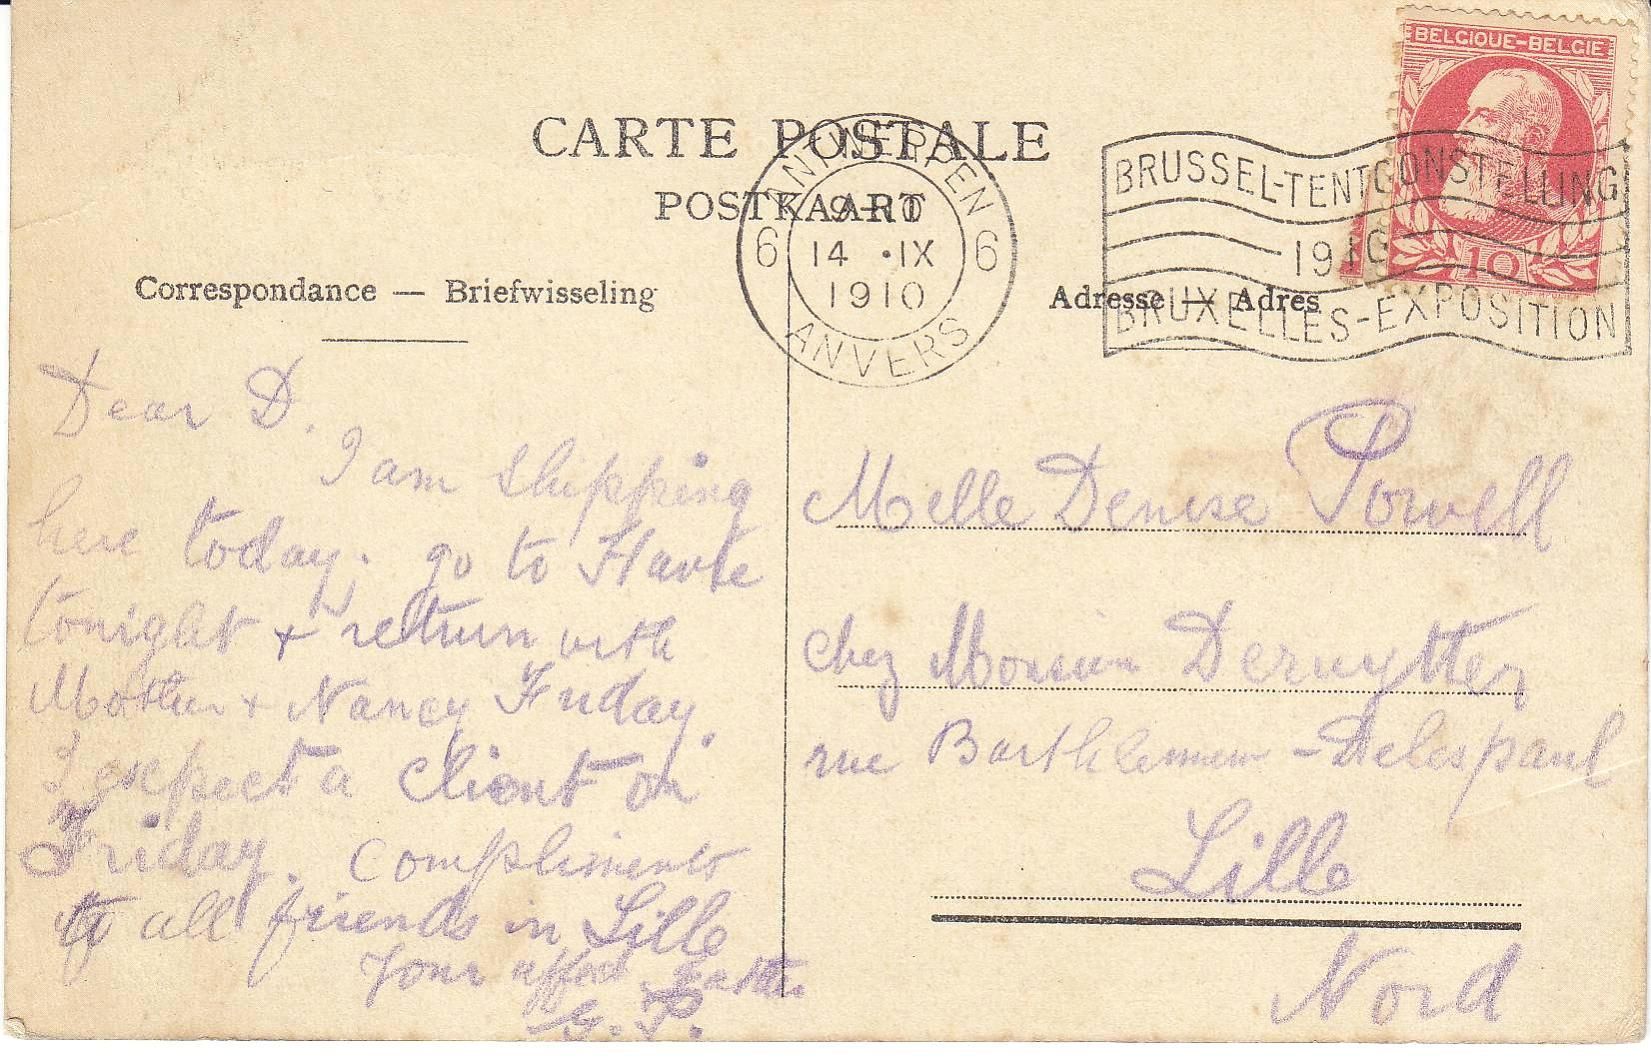 BELGIQUE-BELGIE
10
CARTE POSTALE
POSTKAART
ANTWERPEN
6 6
14 •IX
1910
ANVERS
BRUSSEL-TENTOONSTELLING
1910
BRUXELLES-EXPOSITION
Correspondance — Briefwisseling
Adresse — Adres
Dear D.
I am shipping
here today; go to Havre
tonight + return with
Mother + Nancy Friday.
I expect a client on
Friday. Compliments
to all friends in Lille
Your affect. Father
G. P.
Melle Denise Powell
chez Monsieur Deruytter
rue Barthélemy - Delespaul
Lille
Nord